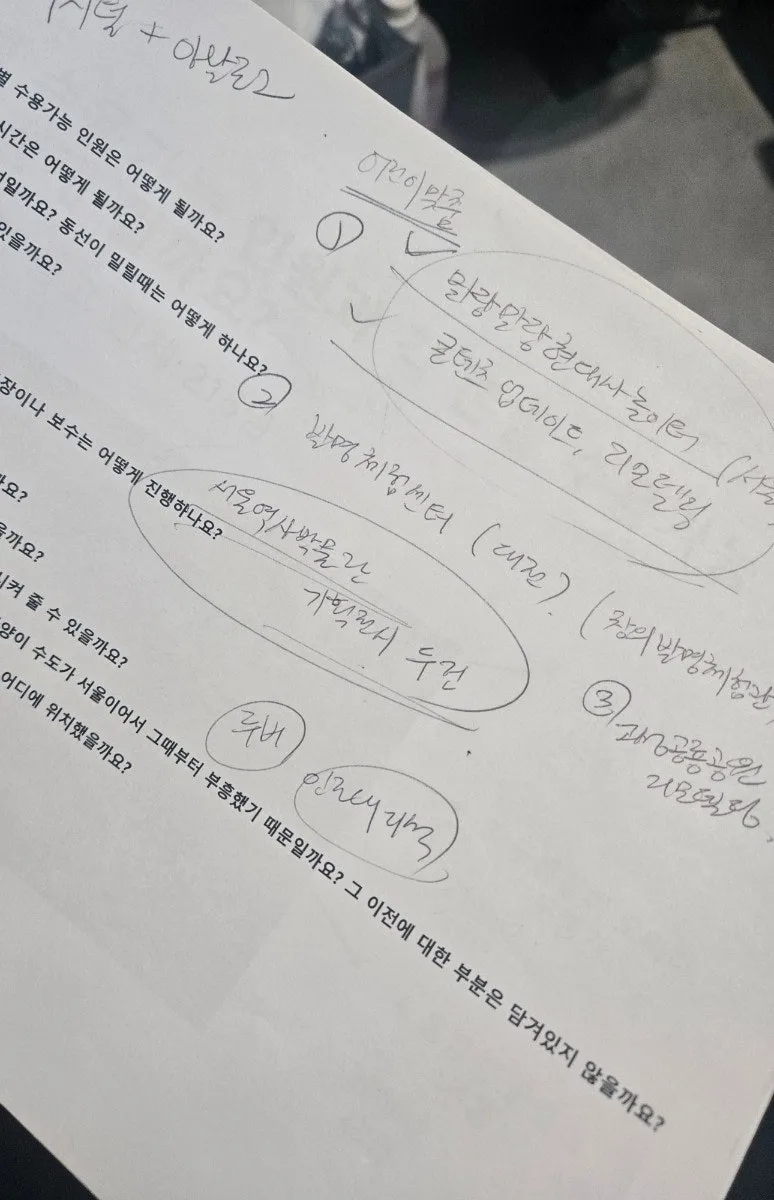 지털 + 아날로그
별 수용가능 인원은 어떻게 될까요?
시간은 어떻게 될까요?
일까요? 동선이 밀릴때는 어떻게 하나요?
있을까요?
어린이 맞춤
① 말랑말랑 현대사놀이터 (서울
콘텐츠 업데이트, 리모델링
② 발명체험센터 (대전). (창의발명체험관
장이나 보수는 어떻게 진행하나요?
서울역사박물관
기획전시 두건
요?
을까요?
③ 고성공룡공원
리모델링,
시켜 줄 수 있을까요?
양이 수도가 서울이어서 그때부터 부흥했기 때문일까요? 그 이전에 대한 부분은 담겨있지 않을까요?
어디에 위치했을까요?
루버